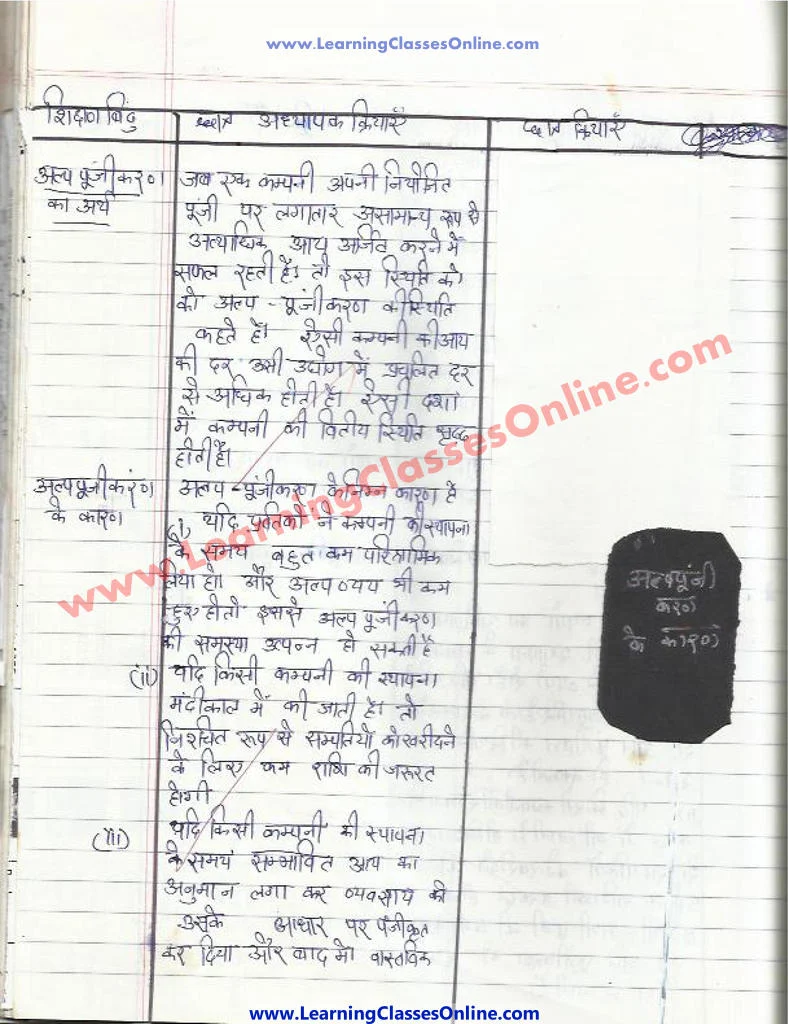 www.LearningClassesOnline.com
शिक्षण बिंदु
अध्यापक क्रियाएँ
छात्र क्रियाएँ
अल्प पूंजीकरण
का अर्थ
जब एक कम्पनी अपनी नियोजित
पूंजी पर लगातार असामान्य रूप से
अत्याधिक आय अर्जित करने में
सफल रहती है। तो इस स्थिति को
को अल्प - पूंजीकरण की स्थिति
कहते है। ऐसी कम्पनी की आय
की दर उसी उद्योग में प्रचलित दर
से अधिक होती है। ऐसी दशा
में कम्पनी की वितीय स्थिति
होती है।
अल्प पूंजीकरण
के कारण
अल्प - पूंजीकरण के निम्न कारण है
(i) यदि प्रवर्तको ने कम्पनी की स्थापना
के समय बहुत कम पारिश्रामिक
लिया हो। और अल्प व्यय भी कम
हुए हो तो इससे अल्प पूंजीकरण
की समस्या उत्पन्न हो सकती है
(ii) यदि किसी कम्पनी की स्थापना
मंदीकाल में की जाती है। तो
निश्चित रूप से सम्पतियो को खरीदने
के लिए कम राशि की जरूरत
होगी
(iii) यदि किसी कम्पनी की स्थापना
के समय सम्भावित आय का
अनुमान लगा कर व्यवसाय को
उसके आधार पर पंजीकृत
कर दिया और बाद मे वास्तविक
अल्प पूंजी
करण
के कारण
www.LearningClassesOnline.com
www.LearningClassesOnline.com